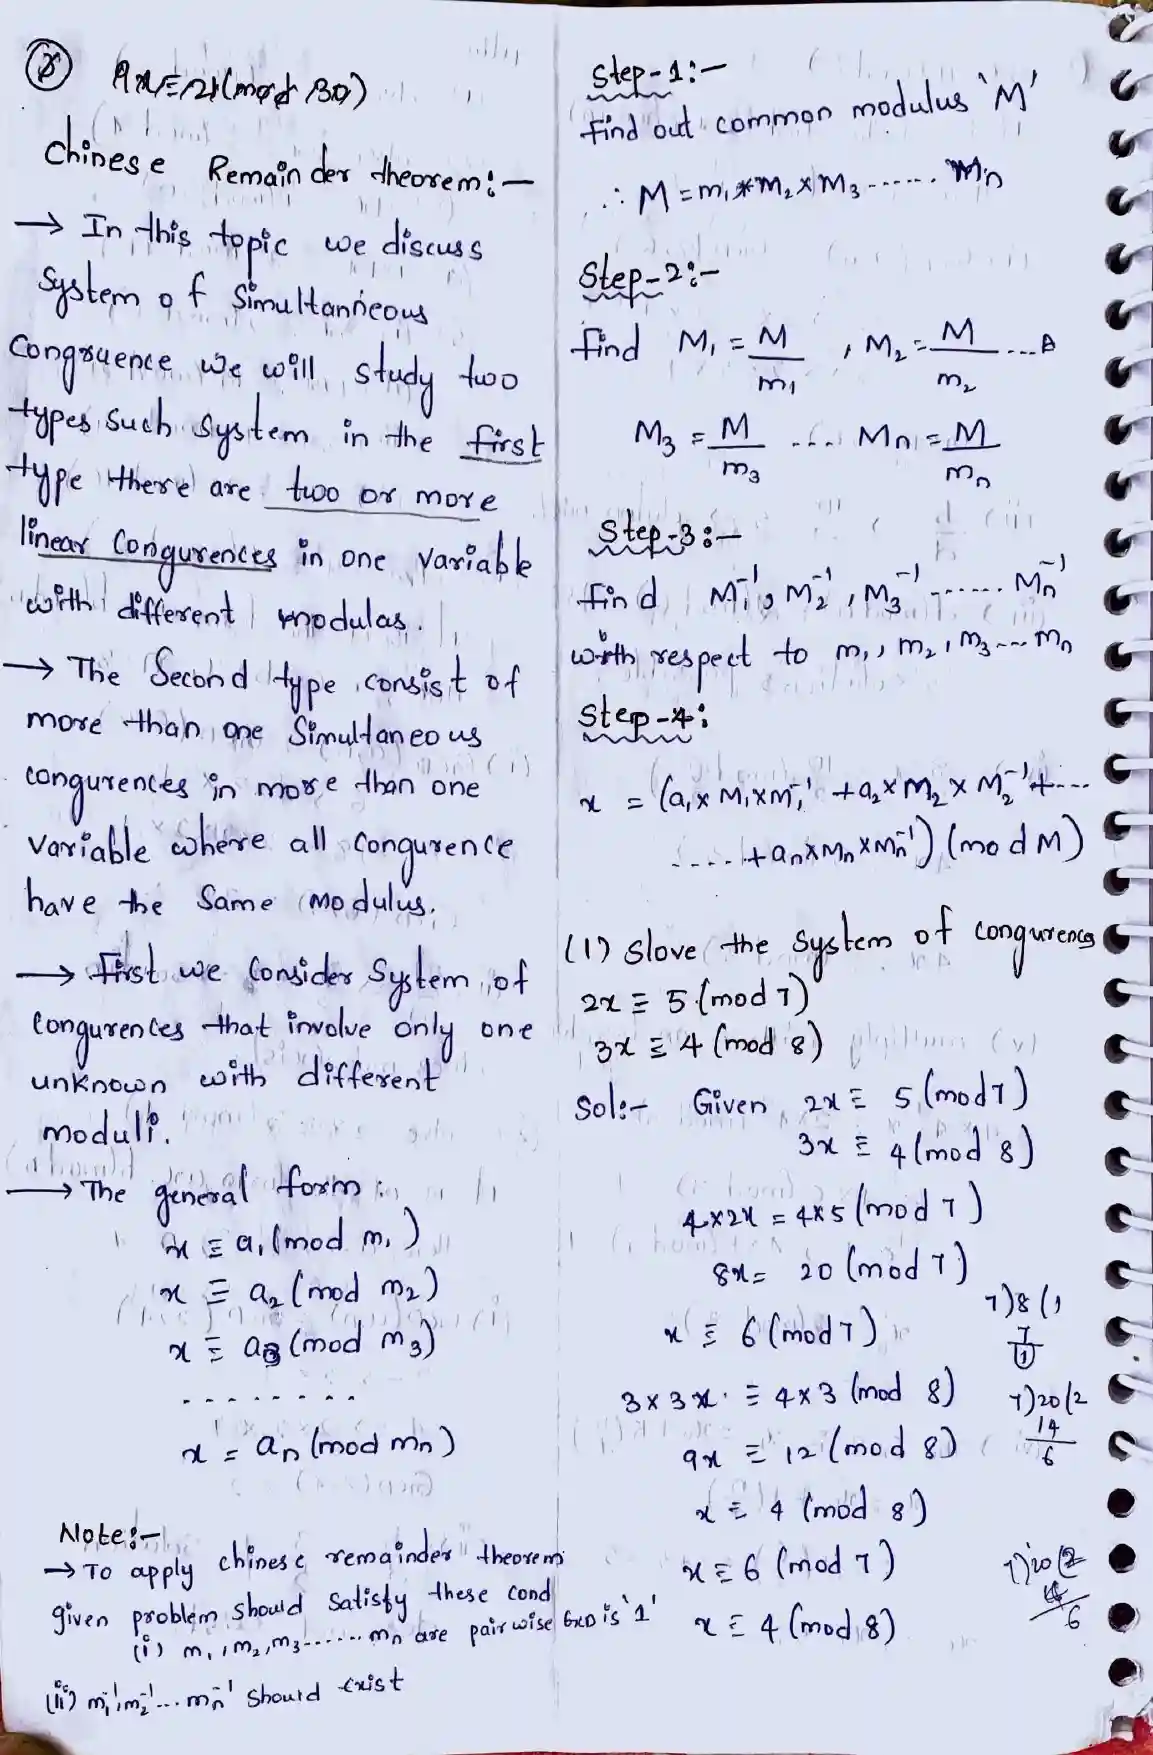 ⑧ 9x≡21(mod 30)
Chinese Remainder theorem:-
→ In this topic we discuss
System of Simultanneous
Congruence we will study two
types such system in the first
type there are two or more
linear Congurences in one variable
with different modulas.
→ The Second type consist of
more than one Simultaneous
congurences in more than one
variable where all congurence
have the Same modulus.
→ First we Consider System of
Congurences that involve only one
unknown with different
moduli.
→ The general form:
x ≡ a₁ (mod m₁)
x ≡ a₂ (mod m₂)
x ≡ a₃ (mod m₃)
- - - - - - - -
x = aₙ (mod mₙ)
Note:-
→ To apply chinese remainder theorem
given problem should satisfy these cond
(i) m₁, m₂, m₃...... mₙ are pairwise GCD is '1'
(ii) m₁⁻¹, m₂⁻¹... mₙ⁻¹ should exist
Step-1:-
find out common modulus 'M'
∴ M = m₁ * m₂ x m₃ ------. mₙ
Step-2:-
find M₁ = M/m₁ , M₂ = M/m₂ ...
M₃ = M/m₃ .... Mₙ = M/mₙ
Step-3:-
find M₁⁻¹, M₂⁻¹, M₃⁻¹ ....... Mₙ⁻¹
with respect to m₁, m₂, m₃... mₙ
Step-4:
x = (a₁ x M₁ x M₁⁻¹ + a₂ x M₂ x M₂⁻¹ + ...
..... + aₙ x Mₙ x Mₙ⁻¹) (mod M)
(1) Slove the System of congurences
2x ≡ 5 (mod 7)
3x ≡ 4 (mod 8)
Sol:- Given 2x ≡ 5 (mod 7)
3x ≡ 4 (mod 8)
4x2x = 4x5 (mod 7)
8x = 20 (mod 7)
7)8(1
7
1
x ≡ 6 (mod 7)
3 x 3x ≡ 4 x 3 (mod 8)
7)20(2
14
6
9x ≡ 12 (mod 8)
x ≡ 4 (mod 8)
x ≡ 6 (mod 7)
7)20(2
6
x ≡ 4 (mod 8)